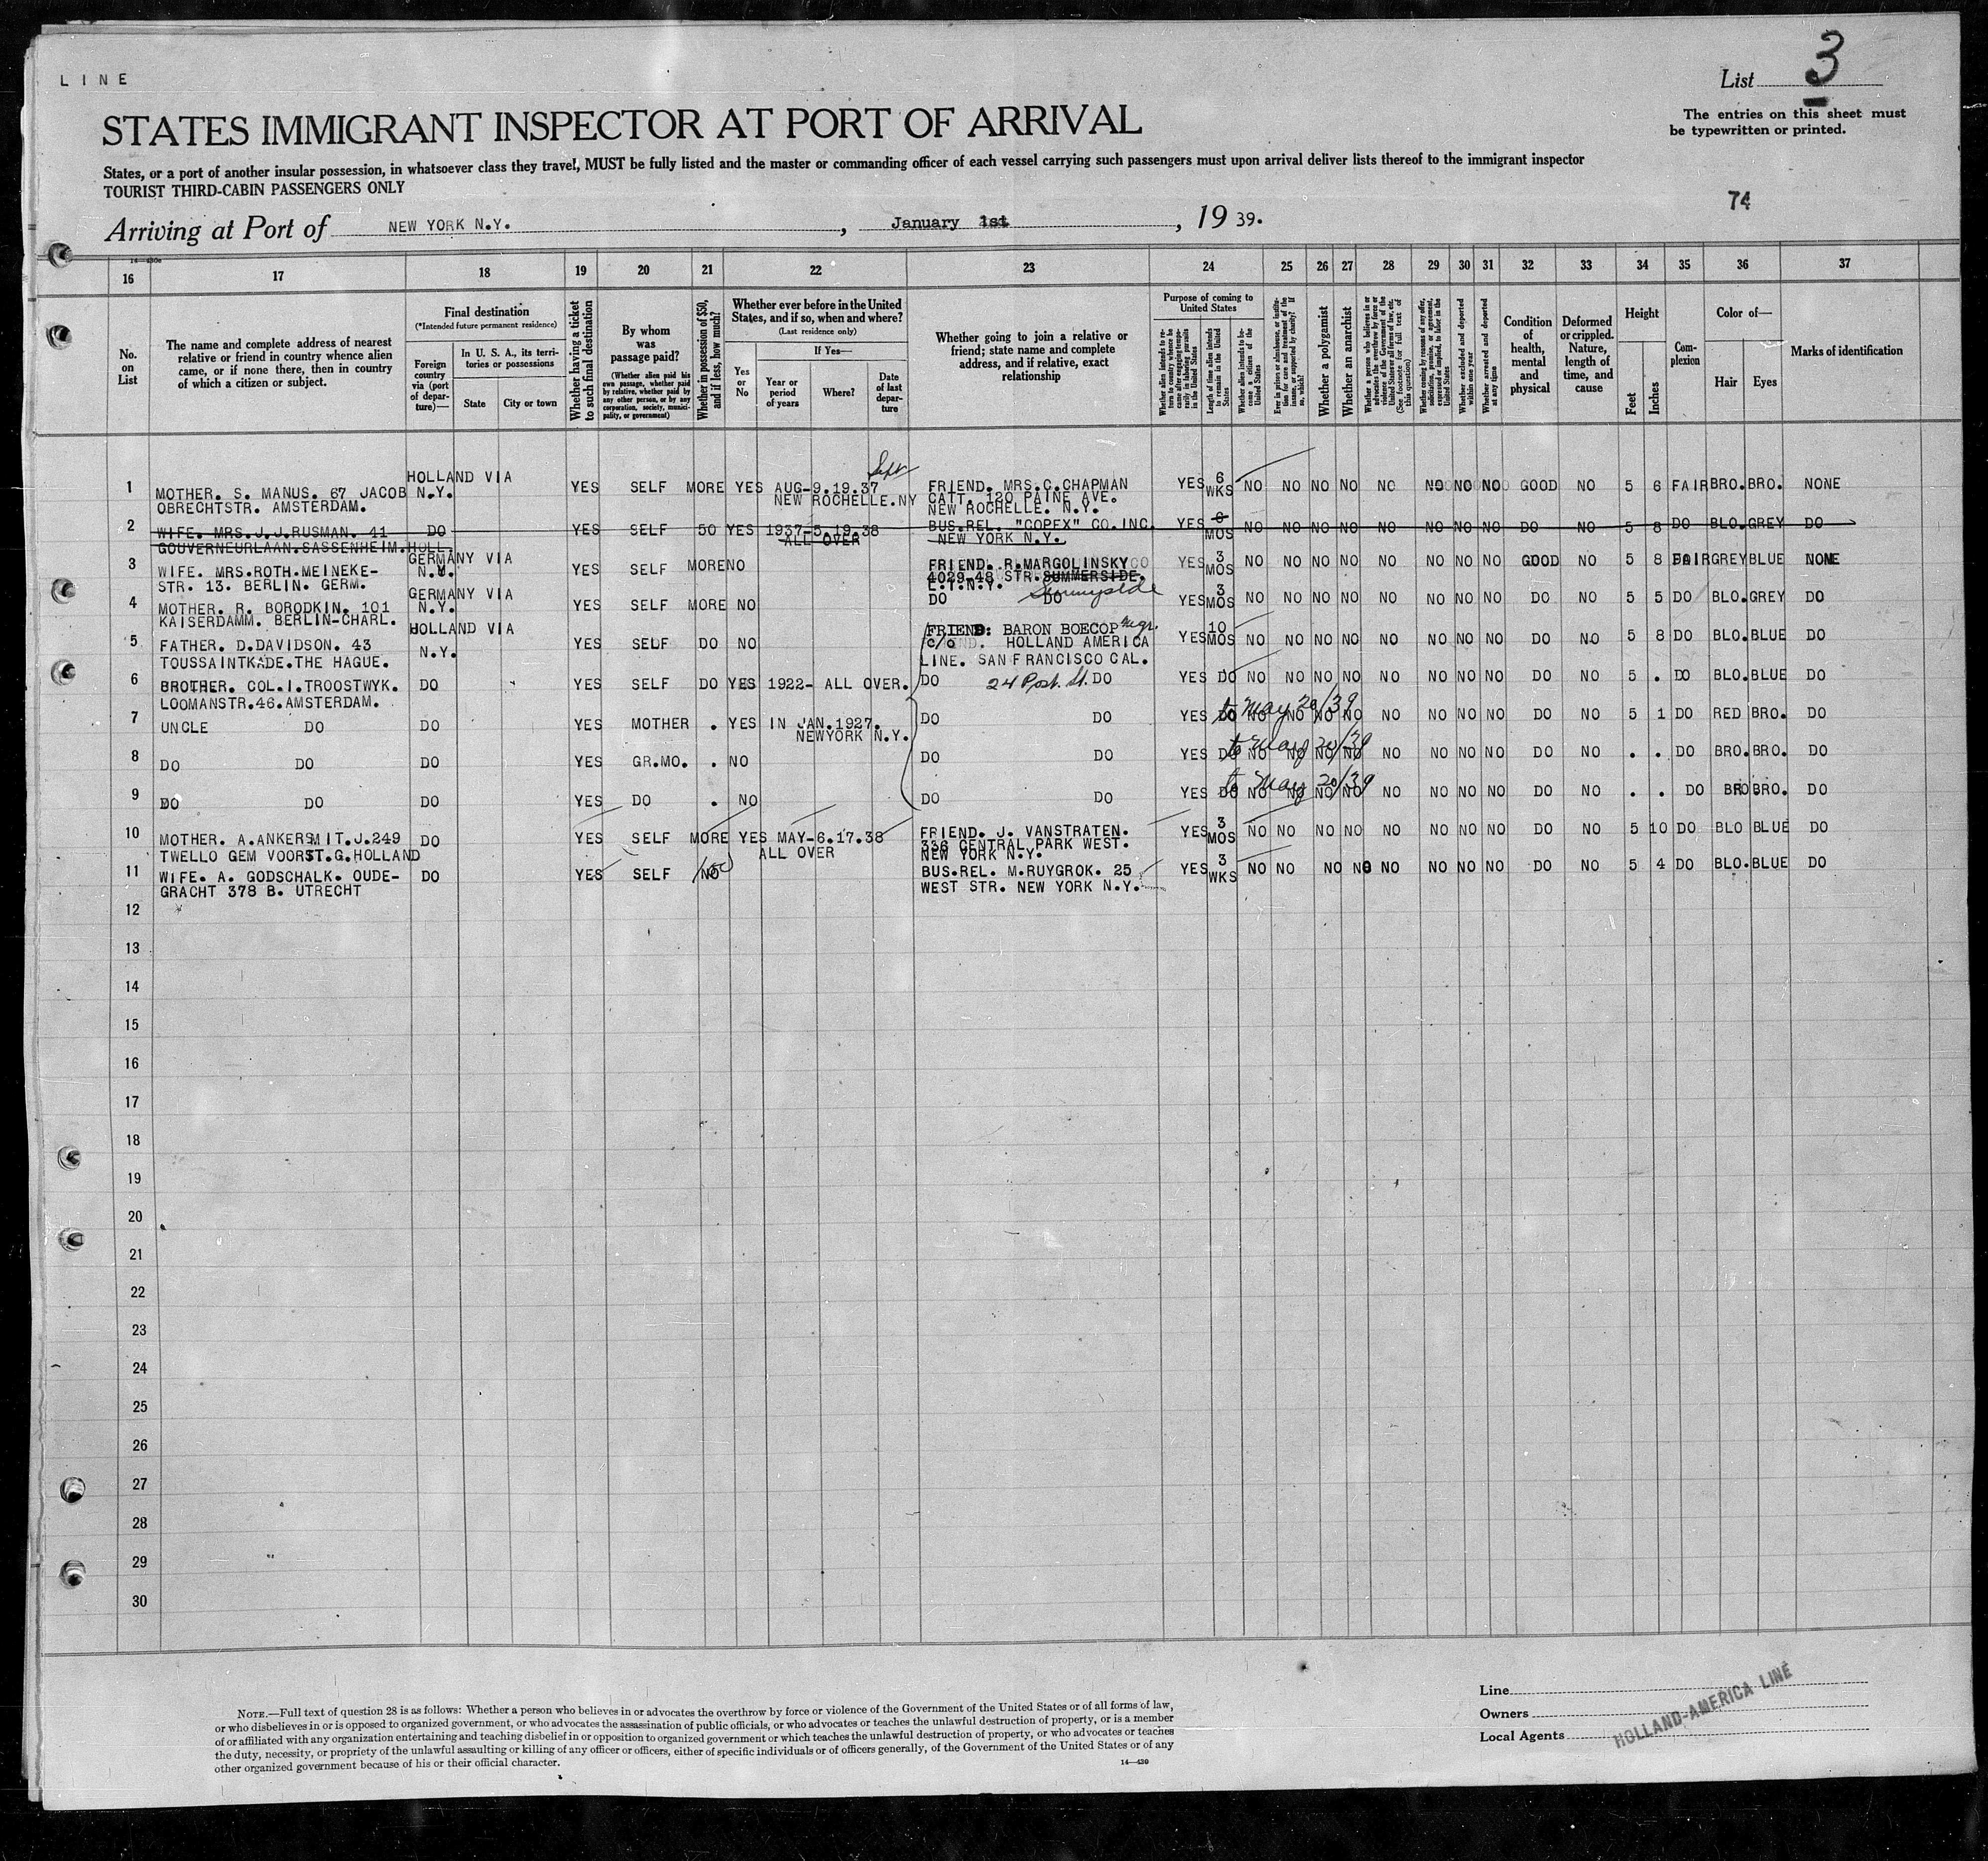 LINE
List 3
The entries on this sheet must
be typewritten or printed.
STATES IMMIGRANT INSPECTOR AT PORT OF ARRIVAL
States, or a port of another insular possession, in whatsoever class they travel, MUST be fully listed and the master or commanding officer of each vessel carrying such passengers must upon arrival deliver lists thereof to the immigrant inspector
TOURIST THIRD-CABIN PASSENGERS ONLY
74
Arriving at Port of NEW YORK N.Y., January 1st, 1939.
16 17 18 19 20 21 22 23 24 25 26 27 28 29 30 31 32 33 34 35 36 37
No. on List
The name and complete address of nearest relative or friend in country whence alien came, or if none there, then in country of which a citizen or subject.
Final destination
(*Intended future permanent residence)
Foreign country via (port of departure)—
In U. S. A., its territories or possessions
State City or town
Whether having a ticket to such final destination
By whom was passage paid?
(Whether alien paid his own passage, whether paid by relative, whether paid by any other person, or by any corporation, society, municipality, or government)
Whether in possession of $50, and if less, how much?
Whether ever before in the United States, and if so, when and where?
(Last residence only)
Yes or No
If Yes—
Year or period of years
Where?
Date of last departure
Whether going to join a relative or friend; state name and complete address, and if relative, exact relationship
Purpose of coming to United States
Whether alien intends to return to country whence he came after engaging temporarily in laboring pursuits in the United States
Length of time alien intends to remain in the United States
Whether alien intends to become a citizen of the United States
Ever in prison or almshouse, or institution for care and treatment of the insane, or supported by charity? If so, which?
Whether a polygamist
Whether an anarchist
Whether a person who believes in or advocates the overthrow by force or violence of the Government of the United States or all forms of law, etc. (See footnote for full text of this question)
Whether coming by reasons of any offer, solicitation, promise, or agreement, expressed or implied, to labor in the United States
Whether excluded and deported within one year
Whether arrested and deported at any time
Condition of health, mental and physical
Deformed or crippled. Nature, length of time, and cause
Height
Feet Inches
Complexion
Color of—
Hair Eyes
Marks of identification
1 MOTHER. S. MANUS. 67 JACOB HOLLAND VIA N.Y. YES SELF MORE YES AUG-9.19.37 Sept FRIEND. MRS.C.CHAPMAN YES 6 WKS NO NO NO NO NO NO NO NO GOOD NO 5 6 FAIR BRO. BRO. NONE
OBRECHTSTR. AMSTERDAM. NEW ROCHELLE.NY CATT. 120 PAINE AVE.
NEW ROCHELLE. N.Y.
2 WIFE. MRS.J.J.RUSMAN. 41 DO YES SELF 50 YES 1937-5.19.38 BUS.REL. "COPEX" CO.INC. YES 6 MOS NO NO NO NO NO NO NO NO DO NO 5 8 DO BLO. GREY DO
GOUVERNEURLAAN.SASSENHEIM.HOLL. ALL OVER NEW YORK N.Y.
3 WIFE. MRS.ROTH.MEINEKE- GERMANY VIA N.Y. YES SELF MORE NO FRIEND. R.MARGOLINSKY YES 3 MOS NO NO NO NO NO NO NO NO GOOD NO 5 8 FAIR GREY BLUE NONE
STR. 13. BERLIN. GERM. 4029-48 STR. SUMMERSIDE. Sunnyside
L.I.N.Y.
4 MOTHER. R. BORODKIN. 101 GERMANY VIA N.Y. YES SELF MORE NO DO DO YES 3 MOS NO NO NO NO NO NO NO NO DO NO 5 5 DO BLO. GREY DO
KAISERDAMM. BERLIN-CHARL.
5 FATHER. D.DAVIDSON. 43 HOLLAND VIA N.Y. YES SELF DO NO FRIEND: BARON BOECOP mgr. YES 10 MOS NO NO NO NO NO NO NO NO DO NO 5 8 DO BLO. BLUE DO
TOUSSAINTKADE.THE HAGUE. c/o HOLLAND AMERICA
LINE. SAN FRANCISCO CAL.
6 BROTHER. COL.I.TROOSTWYK. DO YES SELF DO YES 1922- ALL OVER. DO 24 Post. St. DO YES DO NO NO NO NO NO NO NO NO DO NO 5 . DO BLO. BLUE DO
LOOMANSTR.46.AMSTERDAM.
7 UNCLE DO DO YES MOTHER . YES IN JAN.1927. DO DO YES DO to May 20/39 NO NO NO NO NO NO NO NO DO NO 5 1 DO RED BRO. DO
NEWYORK N.Y.
8 DO DO DO YES GR.MO. . NO DO DO YES DO to May 20/39 NO NO NO NO NO NO NO NO DO NO . . DO BRO. BRO. DO
9 DO DO DO YES DO . NO DO DO YES DO to May 20/39 NO NO NO NO NO NO NO NO DO NO . . DO BRO BRO. DO
10 MOTHER. A.ANKERSMIT.J.249 DO YES SELF MORE YES MAY-6.17.38 FRIEND. J. VANSTRATEN. YES 3 MOS NO NO NO NO NO NO NO NO DO NO 5 10 DO BLO BLUE DO
TWELLO GEM VOORST.G.HOLLAND ALL OVER 336 CENTRAL PARK WEST.
NEW YORK N.Y.
11 WIFE. A. GODSCHALK. OUDE- DO YES SELF NO 150 BUS.REL. M.RUYGROK. 25 YES 3 WKS NO NO NO NO NO NO NO NO DO NO 5 4 DO BLO. BLUE DO
GRACHT 378 B. UTRECHT WEST STR. NEW YORK N.Y.
12
13
14
15
16
17
18
19
20
21
22
23
24
25
26
27
28
29
30
NOTE.—Full text of question 28 is as follows: Whether a person who believes in or advocates the overthrow by force or violence of the Government of the United States or of all forms of law,
or who disbelieves in or is opposed to organized government, or who advocates the assassination of public officials, or who advocates or teaches the unlawful destruction of property, or is a member
of or affiliated with any organization entertaining and teaching disbelief in or opposition to organized government or which teaches the unlawful destruction of property, or who advocates or teaches
the duty, necessity, or propriety of the unlawful assaulting or killing of any officer or officers, either of specific individuals or of officers generally, of the Government of the United States or of any
other organized government because of his or their official character.
14—430
Line
Owners
Local Agents
HOLLAND-AMERICA LINE